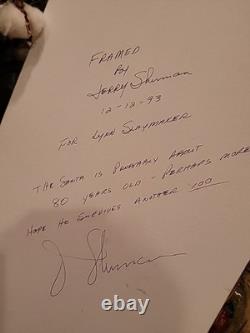 FRAMED
BY
Jerry Sherman
12-12-93
FOR LYNN SLAYMAKER
THE SANTA IS PROBABLY ABOUT
80 YEARS OLD - PERHAPS MORE
HOPE HE SURVIVES ANOTHER 100
J Sherman
ebay